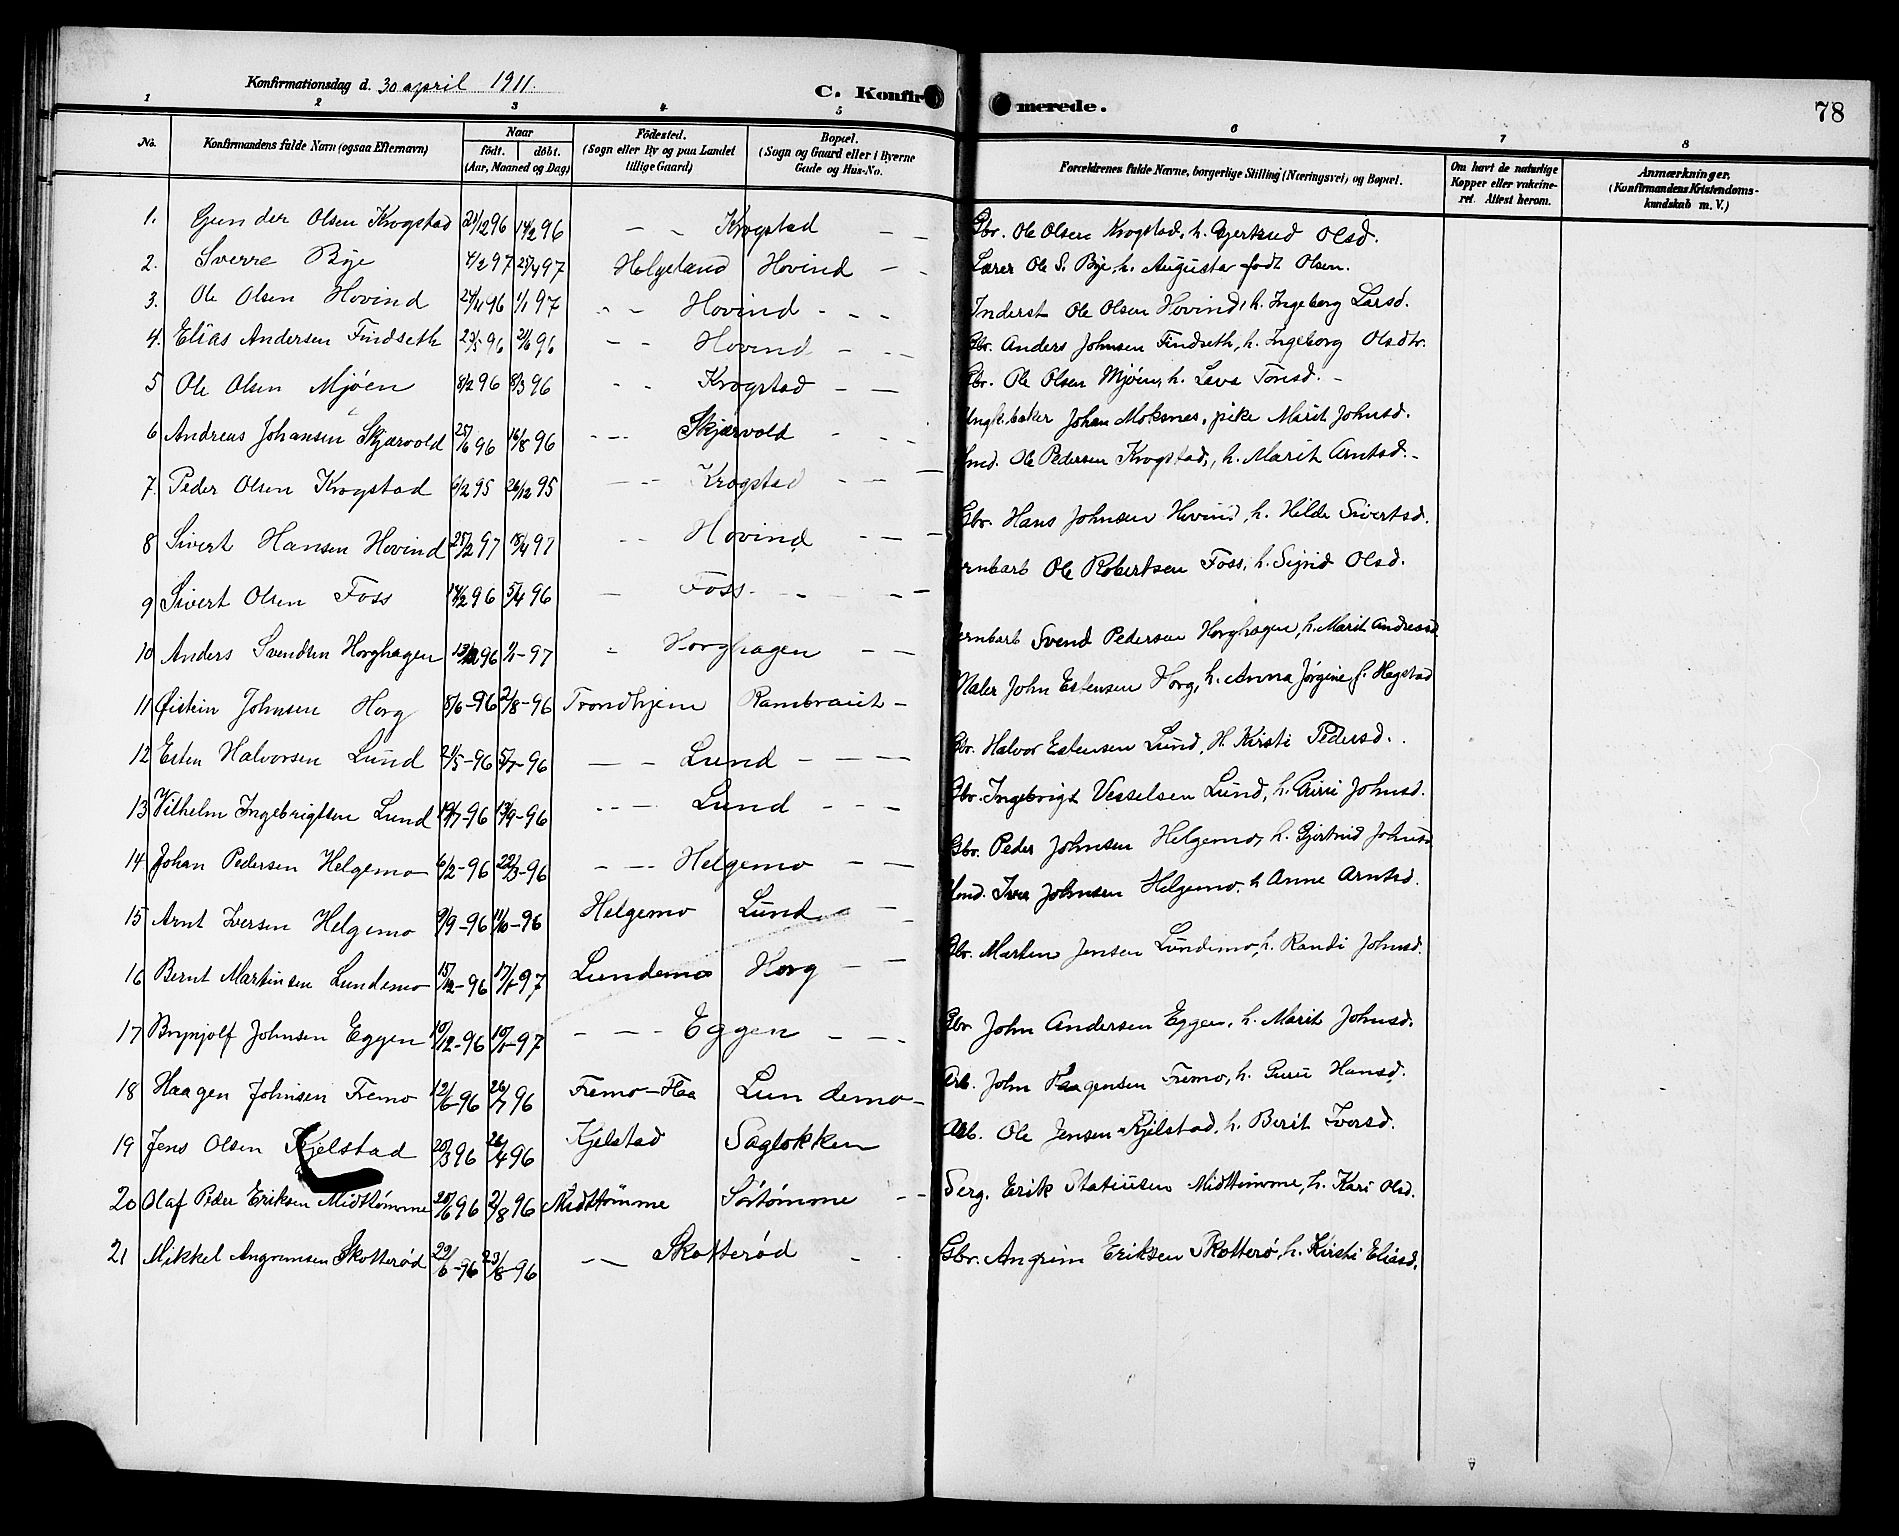 Konfirmationsdag d. 30 april 1911.
C. Konfirmerede.
78
1 2 3 4 5 6 7 8
No.
Konfirmandens fulde Navn (ogsaa Efternavn)
Naar
født. døbt.
(Aar, Maaned og Dag)
Födested.
(Sogn eller By og paa Landet
tillige Gaard)
Bopæl.
(Sogn og Gaard eller i Byerne
Gade og Hus-No.
Forældrenes fulde Navne, borgerlige Stilling (Næringsvei) og Bopæl.
Om havt de naturlige
Kopper eller vakcine-
ret. Attest herom.
Anmærkninger.
(Konfirmandens Kristendoms-
kundskab m. V.)
1. Gunder Olsen Krogstad 96 96 – – Krogstad – – Gbr. Ole Olsen Krogstad, h. Gjertrud Olsd.
2. Sverre Bye 4/2 97 25/4 97 Helgeland Hovind – – Lærer Ole S. Bye, h. Augusta født Olsen.
3. Ole Olsen Hovind 96 1/1 97 – – Hovind – – – Inderst Ole Olsen Hovind, h. Ingeborg Larsd.
4. Elias Andersen Findseth 23/5 96 21/6 96 – – Hovind – – Gbr. Anders Johnsen Findseth, h. Ingeborg Olsdtr.
5 Ole Olsen Mjøen 8/2 96 8/3 96 – – Krogstad – – Gbr. Ole Olsen Mjøen, h. Tonsd. –
6 Andreas Johansen Skjærvold 25/6 96 16/8 96 – – – Skjærvold – – – Ungk. baker Johan Moksnes, pike Marit Johnsd.
7. Peder Olsen Krogstad 95 26/12 95 – – Krogstad – – – Smed. Ole Pedersen Krogstad, h. Marit Arntsd. –
8 Sivert Hansen Hovind 25/2 97 18/4 97 – – Hovind – – – Gbr. Hans Johnsen Hovind, h. Hilde Sivertsd.
9 Sivert Olsen Foss 14/2 96 5/4 96 – Foss. – – – – Jernbarb Ole Robertsen Foss, h. Sigrid Olsd.
10 Anders Svendsen Horghagen 96 1/1 – 97 – Horghagen – – Jernbarb Svend Pedersen Horghagen, h. Marit Andreasd
11 Øistein Johnsen Horg 8/6 – 96 2/8 – 96 Trondhjem Rambraut – Maler John Estensen Horg, h. Anna Jørgine, f. Hegstad
12 Esten Halvorsen Lund 21/5 – 96 5/7 – 96 – – Lund – – – – Gbr. Halvor Estensen Lund, H. Kirsti Pedersd.
13 Vilhelm Ingebrigtsen Lund 19/7 – 96 13/9 – 96 – – – Lund – – – Gbr. Ingebrigt Vesselsen Lund, h. Guri Johnsd.
14 Johan Pedersen Helgemo 6/2 – 96 22/3 – 96 – – – Helgemo – – Gbr. Peder Johnsen Helgemo, h. Gjertrud Johnsd
15 Arnt Iversen Helgemo 9/9 – 96 11/10 – 96 Helgemo Lund – – Iver Johnsen Helgemo, h Anne Arntsd.
16 Bernt Martinsen Lundemo 15/12 – 96 17/1 – 97 Lundemo Horg – – Gbr. Marten Jensen Lundemo, h. Randi Johnsd.
17 Brynjolf Johnsen Eggen 10/12 – 96 10/1 – 97 – – – Eggen – – – Gbr John Andersen Eggen, h. Marit Johnsd.
18 Haagen Johnsen Fremo 12/6 – 96 26/7 96 Fremo – Haa Lundemo – Arb. John Haagensen Fremo, h. Guru Hansd.
19 Jens Olsen Kjelstad 20/3 96 26/4 96 Kjelstad Sagløkken Arb. Ole Jensen Kjelstad, h. Berit Iversd.
20 Olaf Peder Eriksen Midttømme 20/6 96 2/8 96 Midttømme Sørtømme – – Serg. Erik Statiusen Midttømme, h. Kari Olsd.
21 Mikkel Angrimsen Skotterød 29/6 – 96 23/8 – 96 – – Skotterød – Gbr. Angrim Eriksen Skotterø, h. Kirsti Eliasd.